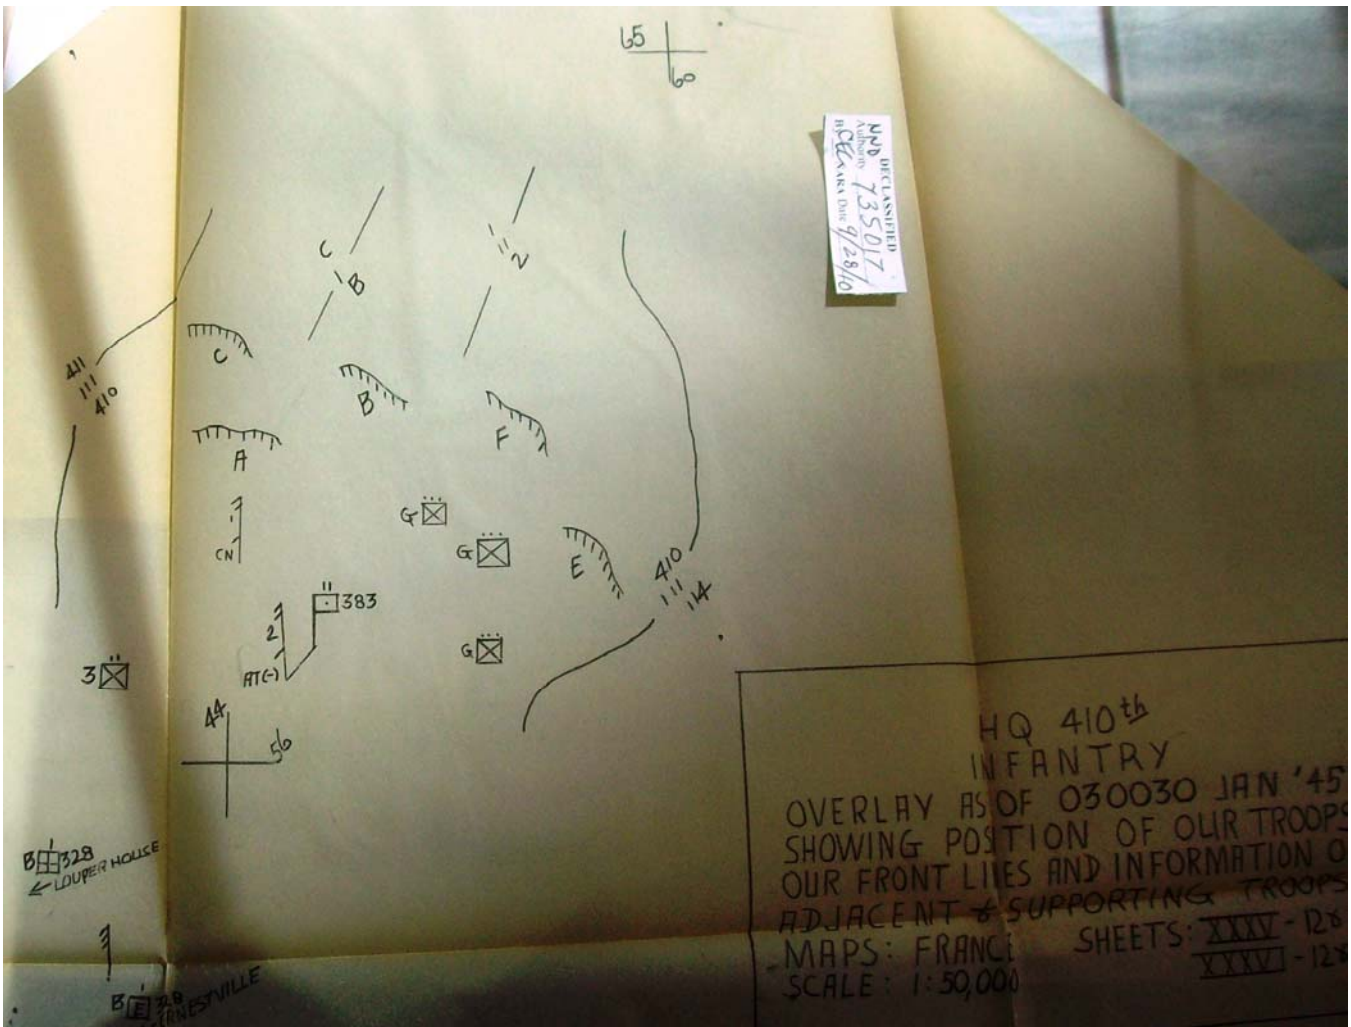 65
60
DECLASSIFIED
Authority NND 735017
By CEC NARA Date 9/28/10
C
B
2
411
111
410
C
B
A
F
CN
G
G
E
410
111
114
383
2
AT(-)
G
3
44
56
B 328
← LOUPER HOUSE
B E 328
HQ 410th
INFANTRY
OVERLAY AS OF 030030 JAN '45
SHOWING POSTION OF OUR TROOPS
OUR FRONT LINES AND INFORMATION O
ADJACENT & SUPPORTING TROOPS
MAPS: FRANCE SHEETS: XXXV - 12
XXXVI - 12
SCALE: 1:50,000